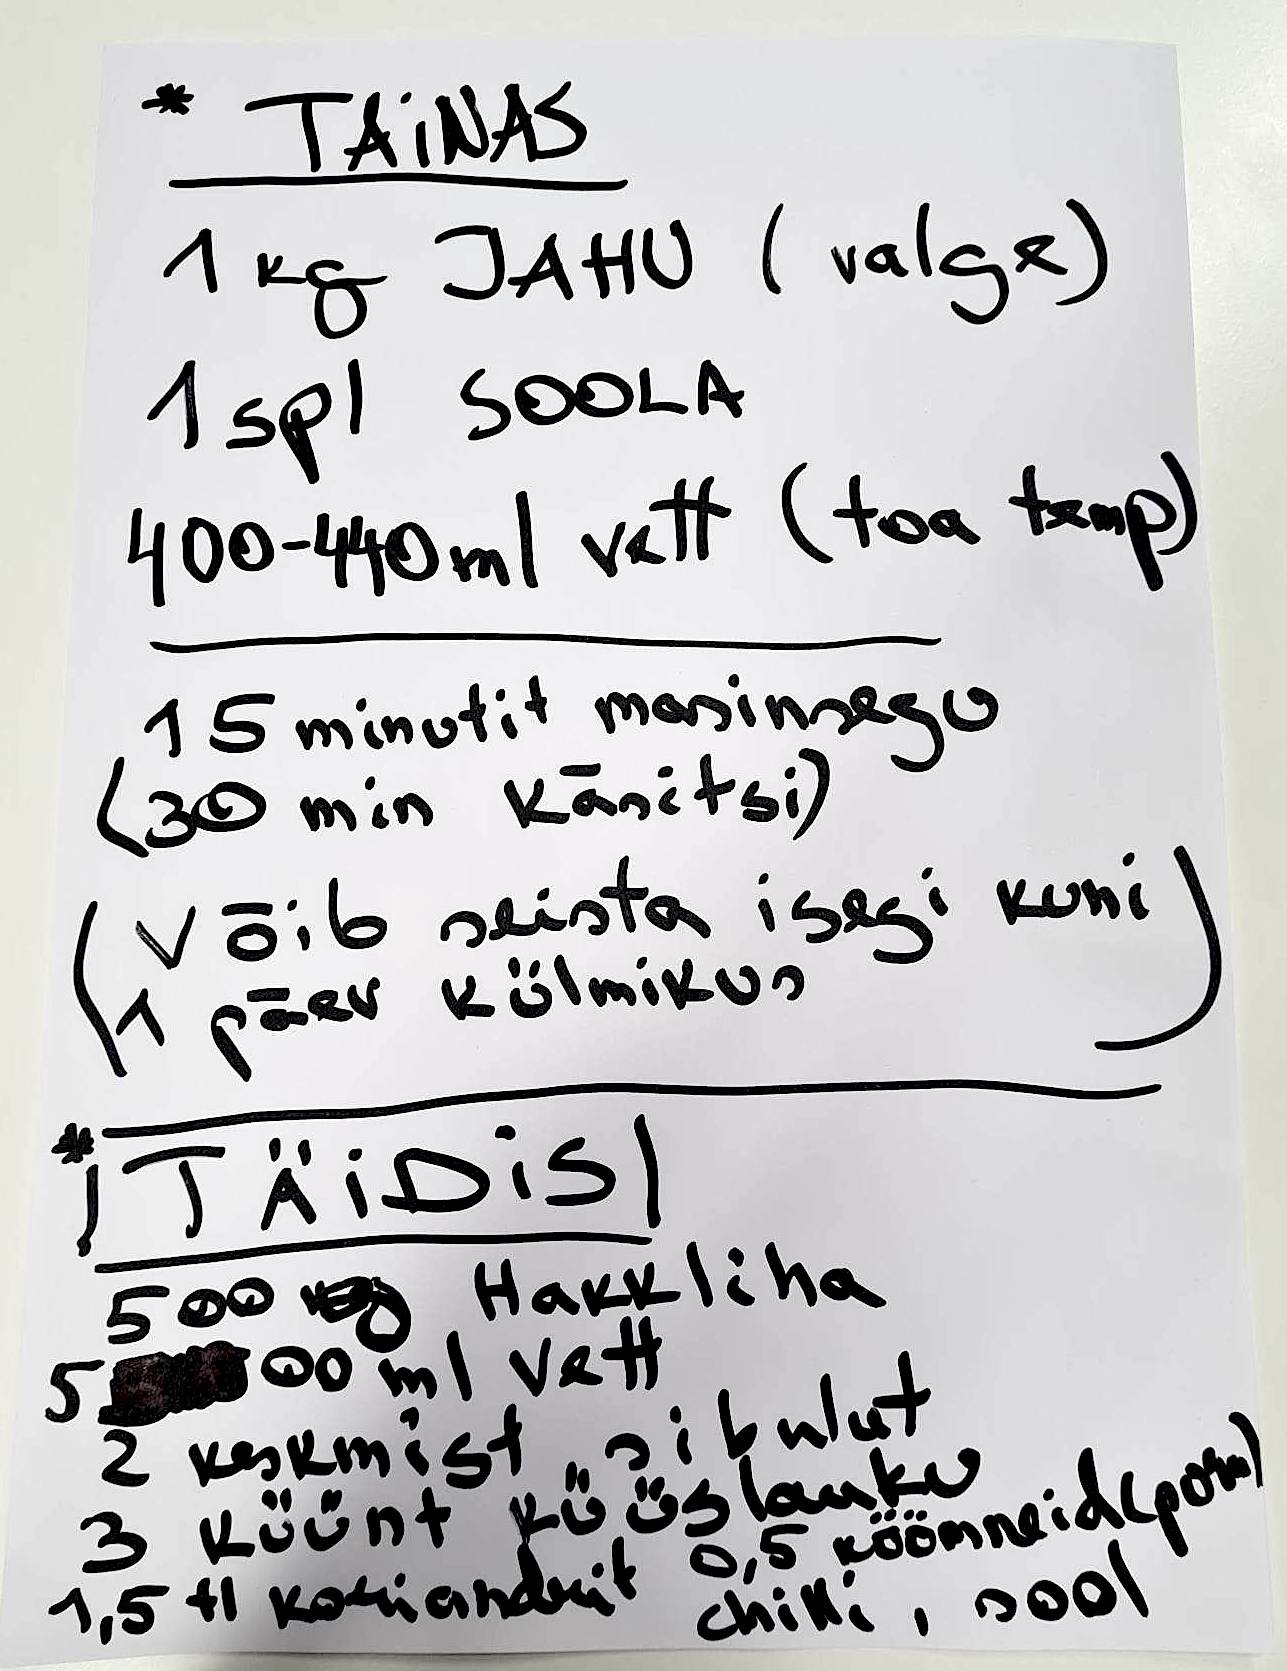 * TAINAS
1 kg JAHU (valge)
1 spl SOOLA
400-440 ml vett (toa temp)
15 minutit masinsegu
(30 min käsitsi)
(võib seista isegi kuni
1 päev külmikus)
* TÄIDIS
500 g Hakkliha
500 ml vett
2 keskmist sibulat
3 küünt küüslauku
1,5 tl koriandrit 0,5 köömneid
chilli, sool